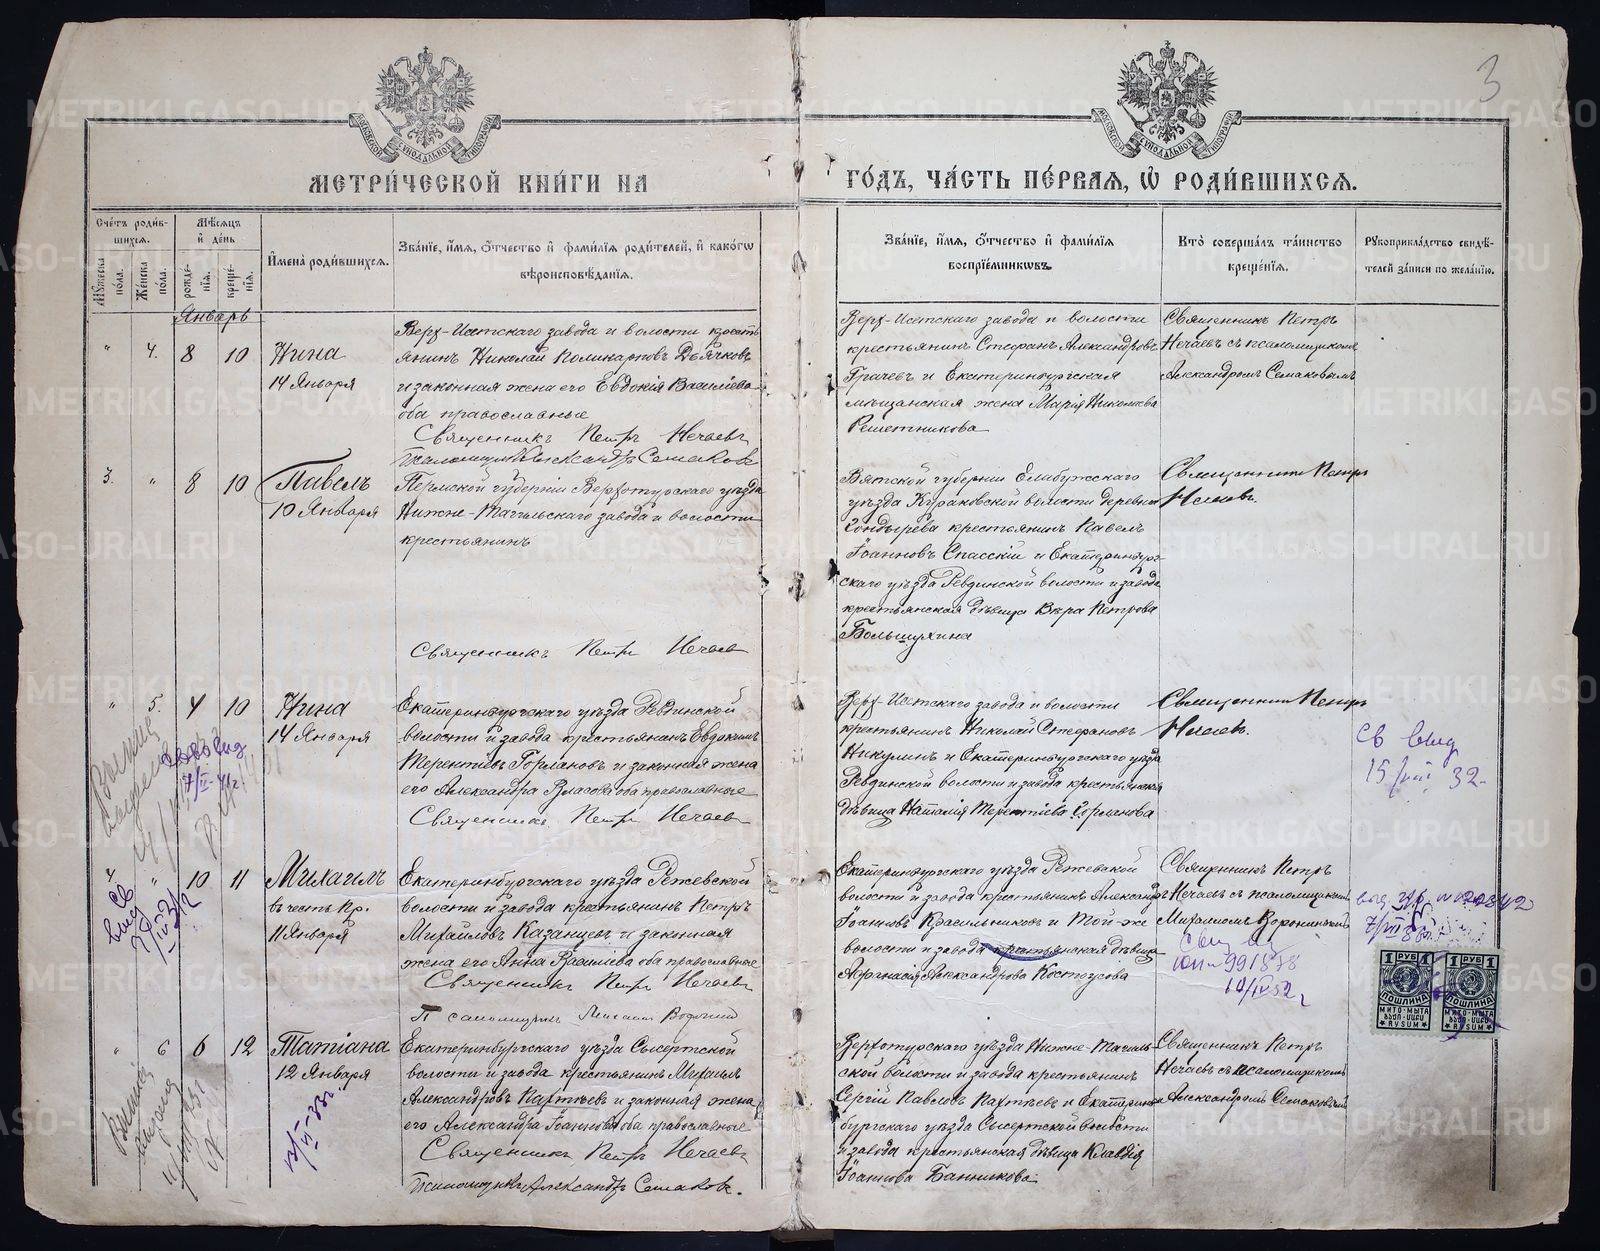 3
МЕТРИ́ЧЕСКОЙ КНИ́ГИ НА
ГО́ДЪ, ЧА́СТЬ ПЕ́РВАЯ, Ѡ҆ РОДИ́ВШИХСЯ.
Сче́тъ роди́в-
шихся.
Мꙋ́жеска по́ла.
Же́нска по́ла.
Мѣ́сяцъ
и҆ де́нь
рожде́-
нїя.
креще́-
нїя.
И҆мена̀ роди́вшихся.
Зва́нїе, и҆́мя, ѻ҆́тчество и҆ фами́лїя роди́телей, и҆ како́гѡ
вѣроисповѣ́данїя.
Зва́нїе, и҆́мя, ѻ҆́тчество и҆ фами́лїя
воспрїе́мникѡвъ.
Кто̀ соверша́лъ та́инство
креще́нїя.
Рꙋкоприкла́дство свидѣ́-
телей за́писи по жела́нїю.
Январь
" 4. 8 10
Нина
14 Января
Верх-Исетскаго завода и волости кресть
янинъ Николай Поликарповъ Дьячковъ
и законная жена его Евдокія Василіева
оба православные
Священникъ Петръ Нечаевъ
Псаломщикъ Александръ Семаковъ
Верх-Исетскаго завода и волости
крестьянинъ Стефанъ Александровъ
Грачевъ и Екатеринбургская
мѣщанская жена Марія Николаева
Решетникова
Священникъ Петръ
Нечаевъ съ псаломщикомъ
Александромъ Семаковымъ
3. " 8 10
Павелъ
10 Января
Пермской губерніи Верхотурскаго уѣзда
Нижне-Тагильскаго завода и волости
крестьянинъ
Священникъ Петръ Нечаевъ
Вятской губерніи Елабужскаго
уѣзда Кураковской волости деревни
Гондырева крестьянинъ Павелъ
Іоанновъ Спасскій и Екатеринбург-
скаго уѣзда Ревдинской волости и завода
крестьянская дѣвица Вѣра Петрова
Большухина
Священникъ Петръ
Нечаевъ.
" 5. 4 10
Нина
14 Января
Екатеринбургскаго уѣзда Ревдинской
волости и завода крестьянинъ Евдокимъ
Терентіевъ Горлановъ и законная жена
его Александра Власова оба православные
Священникъ Петръ Нечаевъ
Верх-Исетскаго завода и волости
крестьянинъ Николай Стефановъ
Никулинъ и Екатеринбургскаго уѣзда
Ревдинской волости и завода крестьянская
дѣвица Наталія Терентіева Горланова
Священникъ Петръ
Нечаевъ.
св выд
15/VIII 32.
7/II-41г
4 " 10 11
св
выд
Михаилъ
въ честь Пр.
11 Января
Екатеринбургскаго уѣзда Режевской
волости и завода крестьянинъ Петръ
Михайловъ Казанцевъ и законная
жена его Анна Василіева оба православные
Священникъ Петръ Нечаевъ
Псаломщикъ Михаилъ
Екатеринбургскаго уѣзда Режевской
волости и завода крестьянинъ Александръ
Іоанновъ Красильниковъ и той-же
волости и завода крестьянская дѣвица
Афанасія Александрова Костоусова
Священникъ Петръ
Нечаевъ съ псаломщикомъ
Михаиломъ
991878
10/IV 52 г
1 РУБ 1
ПОШЛИНА
МИТО-МЫТА
RVSUM
1 РУБ 1
ПОШЛИНА
МИТО-МЫТА
RVSUM
" 6 6 12
Татіана
12 Января
Екатеринбургскаго уѣзда Сысертской
волости и завода крестьянинъ Михаилъ
Александровъ Картѣевъ и законная жена
его Александра Іоаннова оба православные
Священникъ Петръ Нечаевъ
Псаломщикъ Александръ Семаковъ.
Верхотурскаго уѣзда Нижне-Тагиль-
ской волости и завода крестьянинъ
Сергій Павловъ и Екатерин-
бургскаго уѣзда Сысертской волости
и завода крестьянская дѣвица Клавдія
Іоаннова Банникова.
Священникъ Петръ
Нечаевъ съ псаломщикомъ
Александромъ Семаковымъ
METRIKI.GASO-URAL.RU